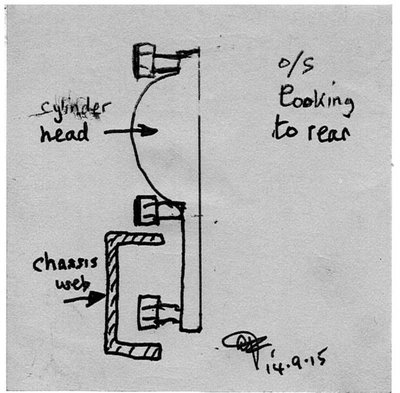 cylinder
head
o/s
looking
to rear
chassis
web
14.9.15